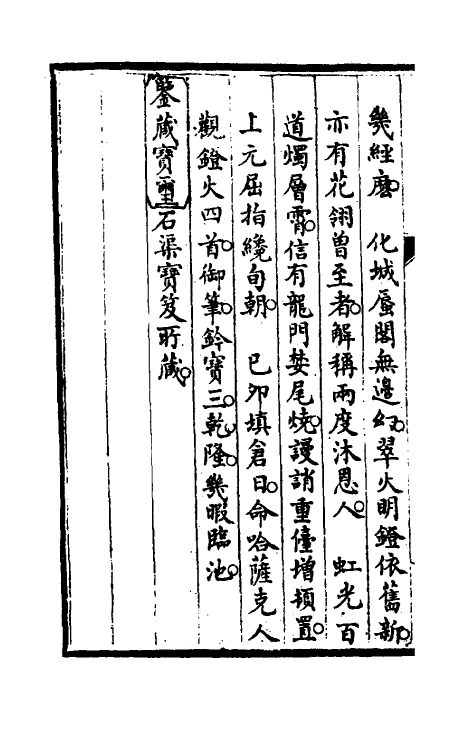 幾經磨　化城蜃閣無邊幻。翠火明鐙依舊新。
亦有花翎曽至者。解稱兩度沐恩人。　虹光百
道燭層霄。信有龍門婪尾燒。謾誚重儓增頓置。
上元屈指纔旬朝。　已夘填倉日。命哈薩克人
觀鐙火四首。御筆。鈐寳三。乾隆。幾暇臨池。
鑒藏寳璽石渠寳笈所藏。